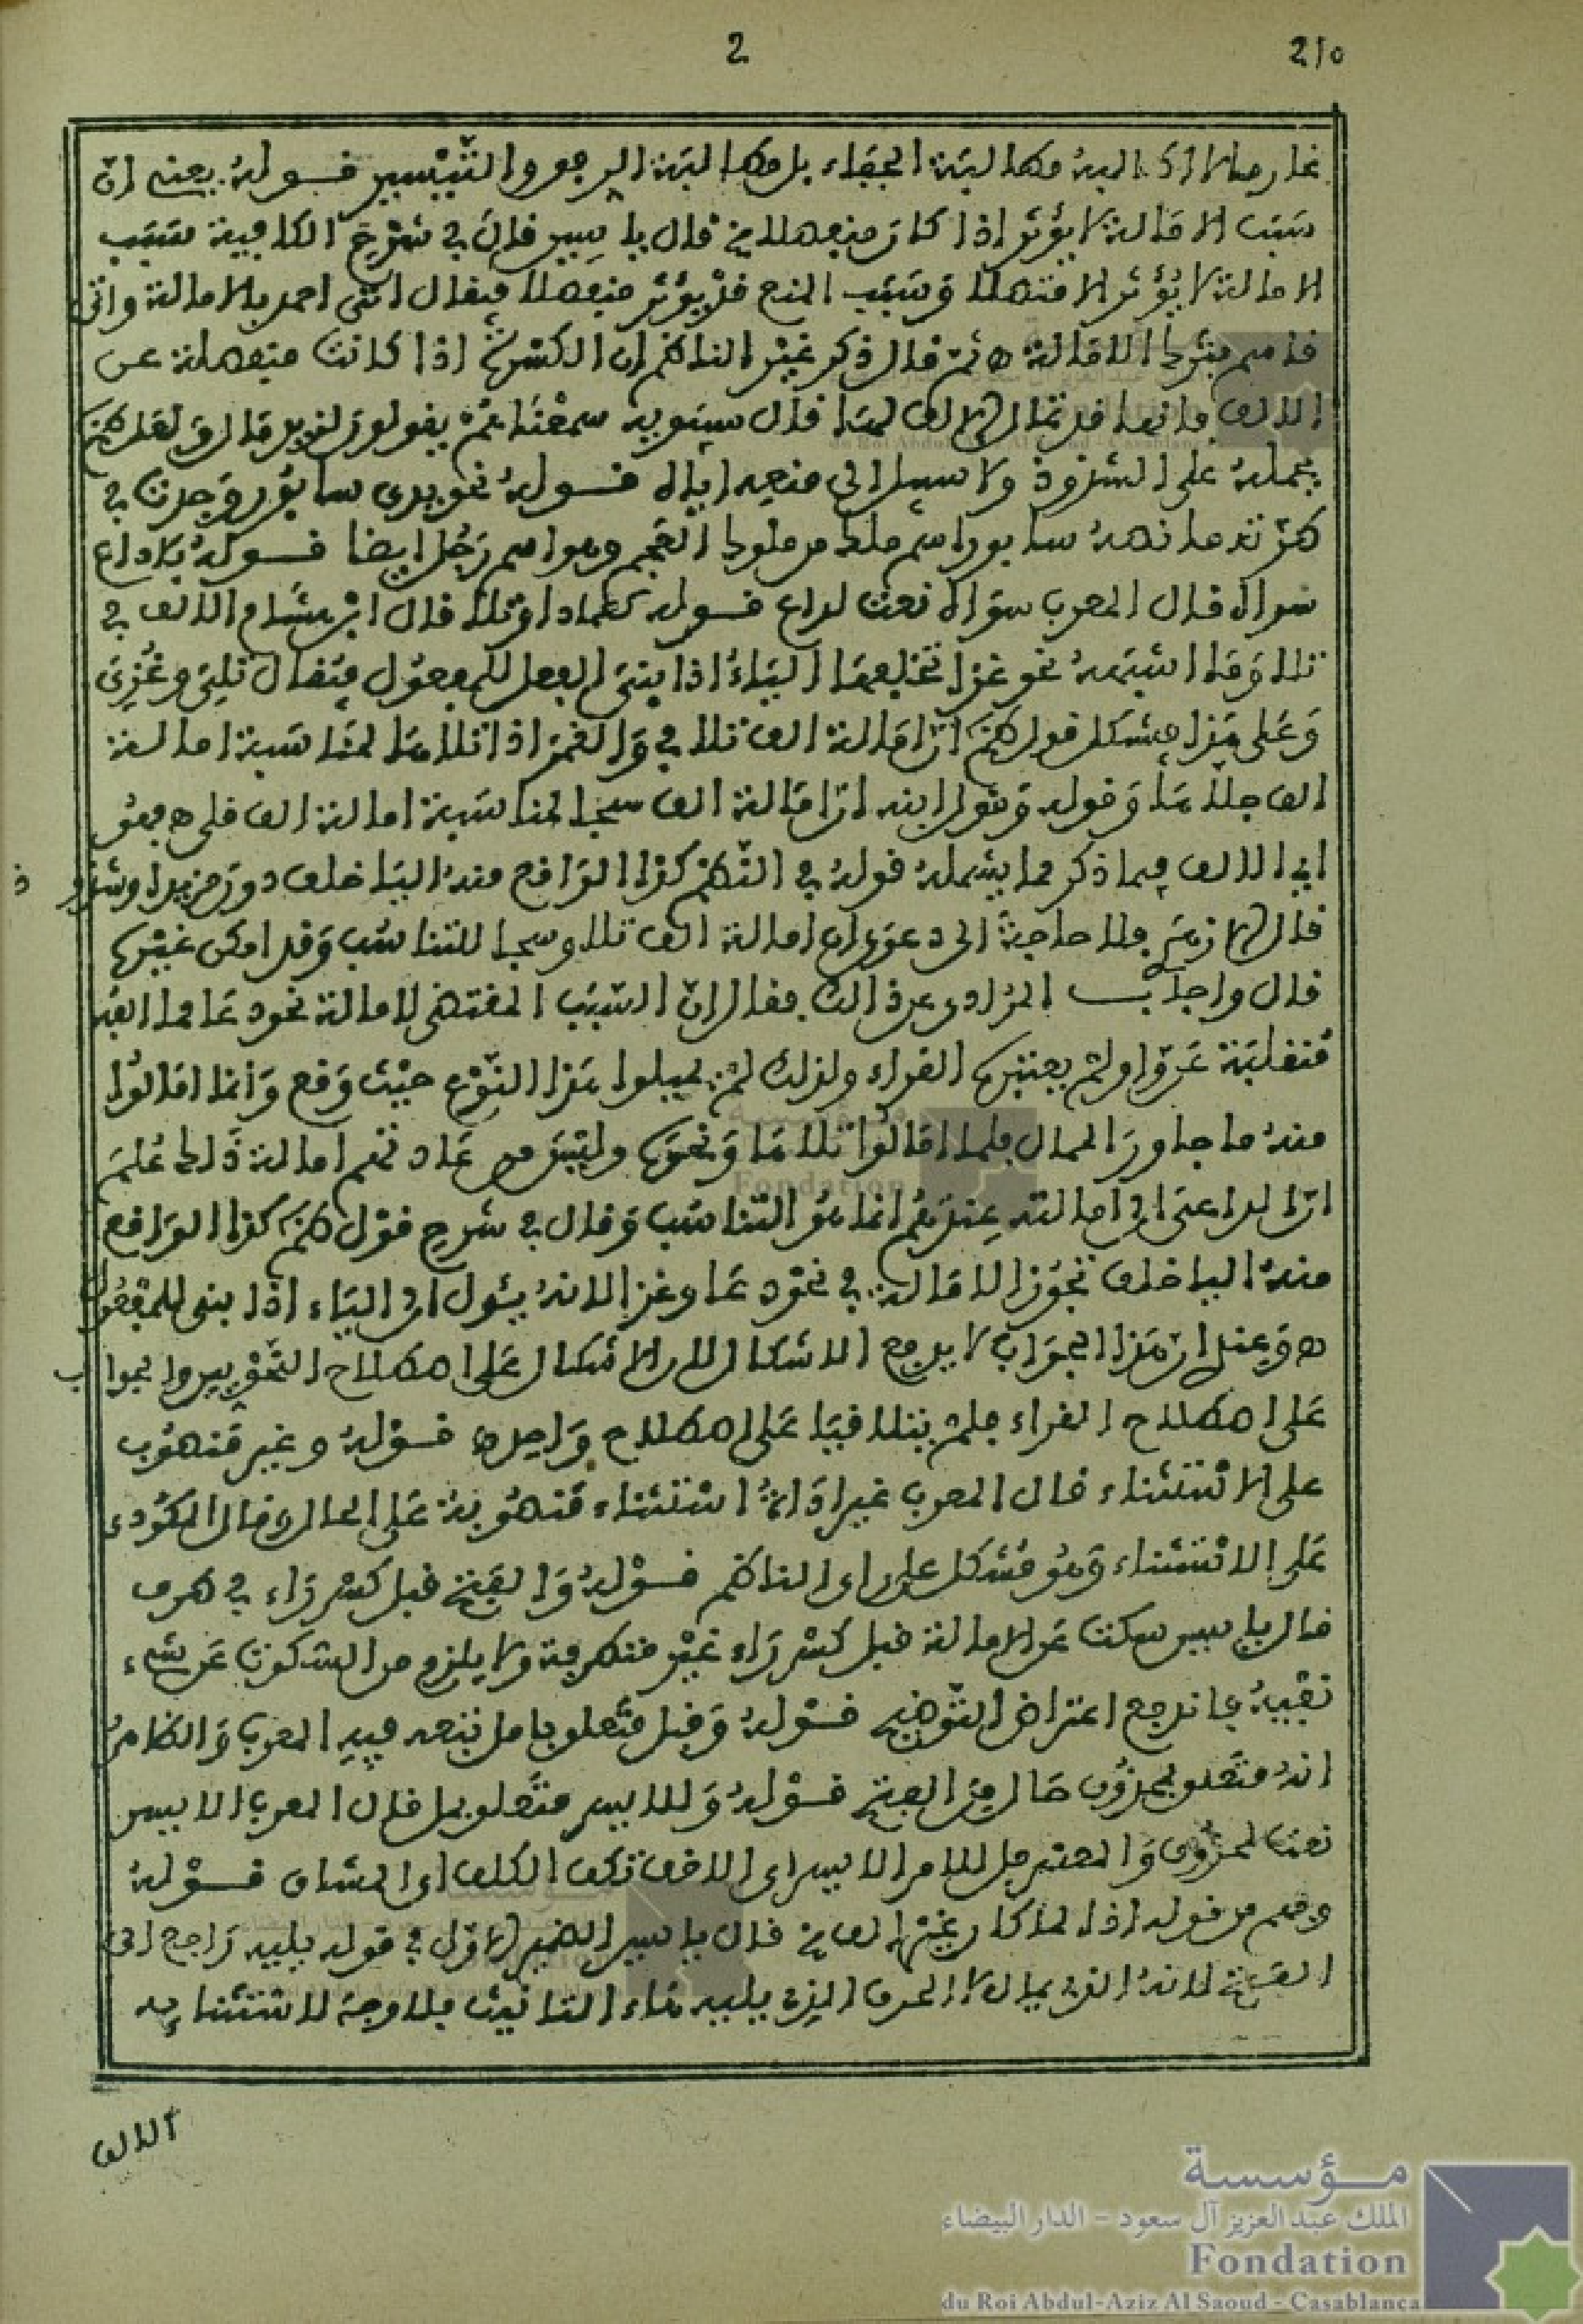 2 210
مطالبة الجفاء بل مطالبة الرفق والتيسير قوله يعني ان
سبب الامالة لا يؤثر اذا كان منفصلا الخ قال ياسين قال في شرح الكافية سبب
الامالة لا يؤثر الا متصلا وسبب المنع قد يؤثر منفصلا فيقال اتى احمد بالامالة واتى
قاسم بترك الامالة ه ثم قال ذكر غير الناظم ان الكسرة اذا كانت منفصلة عن
الالف فانها قد تمال الالف لها قال سيبويه سمعناهم يقولون لزيد مال ولعل الناظم
يحمله على الشذوذ ولا سبيل الى منعه اياه قوله نحو يدى سابور وجدت في
طرته ما نصه سابور اسم ملك من ملوك العجم وهو اسم رجل ايضا قوله بلا داع
سواه قال المعرب سواه نعت لداع قوله كعمادا وتلا قال ابن هشام الالف في
تلا وما اشبهه نحو غزا تخلفها الياء اذا بني الفعل للمفعول فيقال تلي وغزي
وعلى هذا فيشكل قول الناظم ان امالة الف تلا في والقمر اذا تلاها لمناسبة امالة
الف جلاها وقوله وقول ابنه ان امالة الف سجا لمناسبة امالة الف قلى ه فهو
اي الالف فيما ذكر مما يشمله قوله في النظم كذا الواقع منه اليا خلف دون مزيد او شذوذ
قال الازهري فلا حاجة الى دعوى ان امالة الف تلا وسجا للتناسب وقد امكن غيرها
قال واجاب المرادي عن ذلك فقال ان السبب المقتضي لامالة نحو دعا مما الفه
منقلبة عن واو لم يعتبرها القراء ولذلك لم يميلوا هذا النوع حيث وقع وانما امالوا
منه ما جاور الممال فلما امالوا تلاها ونحوها وليس من عادتهم امالة ذلك علم
ان الداعي الى امالته عندهم انما هو التناسب وقال في شرح قول الناظم كذا الواقع
منه اليا خلف تجوز الامالة في نحو دعا وغزا لانه يئول الى الياء اذا بني للمفعول
ه وعندي ان هذا الجواب لا يدفع الاشكال لان الاشكال على اصطلاح النحويين والجواب
على اصطلاح القراء فلم يتلاقيا على اصطلاح واحد ه قوله وغير منصوب
على الاستثناء قال المعرب غير اداة استثناء منصوبة على الحال وقال المكودي
على الاستثناء وهو مشكل على راي الناظم قوله والفتح قبل كسر راء في طرف
قال ياسين سكت عن الامالة قبل كسر راء غير متطرفة ولا يلزم من السكوت عن شيء
نفيه فاندفع اعتراض التوضيح قوله وقبل متعلق بامل تبعه فيه المعرب والظاهر
انه متعلق بمحذوف حال من الفتح قوله وللايسر متعلق بمل قال المعرب الايسر
نعت لمحذوف والمعنى مل للامر الايسر اي الاخف تكف الكلف اي المشاق قوله
وفهم من قوله اذا ما كان غير الف الخ قال ياسين الضمير الاول في قوله يليه راجع الى
الفتح لانه الذي يمال لا الحرف الذي يليه هاء التانيث فلا وجه لاستثنائه
الالف
مؤسسة
الملك عبد العزيز آل سعود - الدار البيضاء
Fondation
du Roi Abdul-Aziz Al Saoud - Casablanca